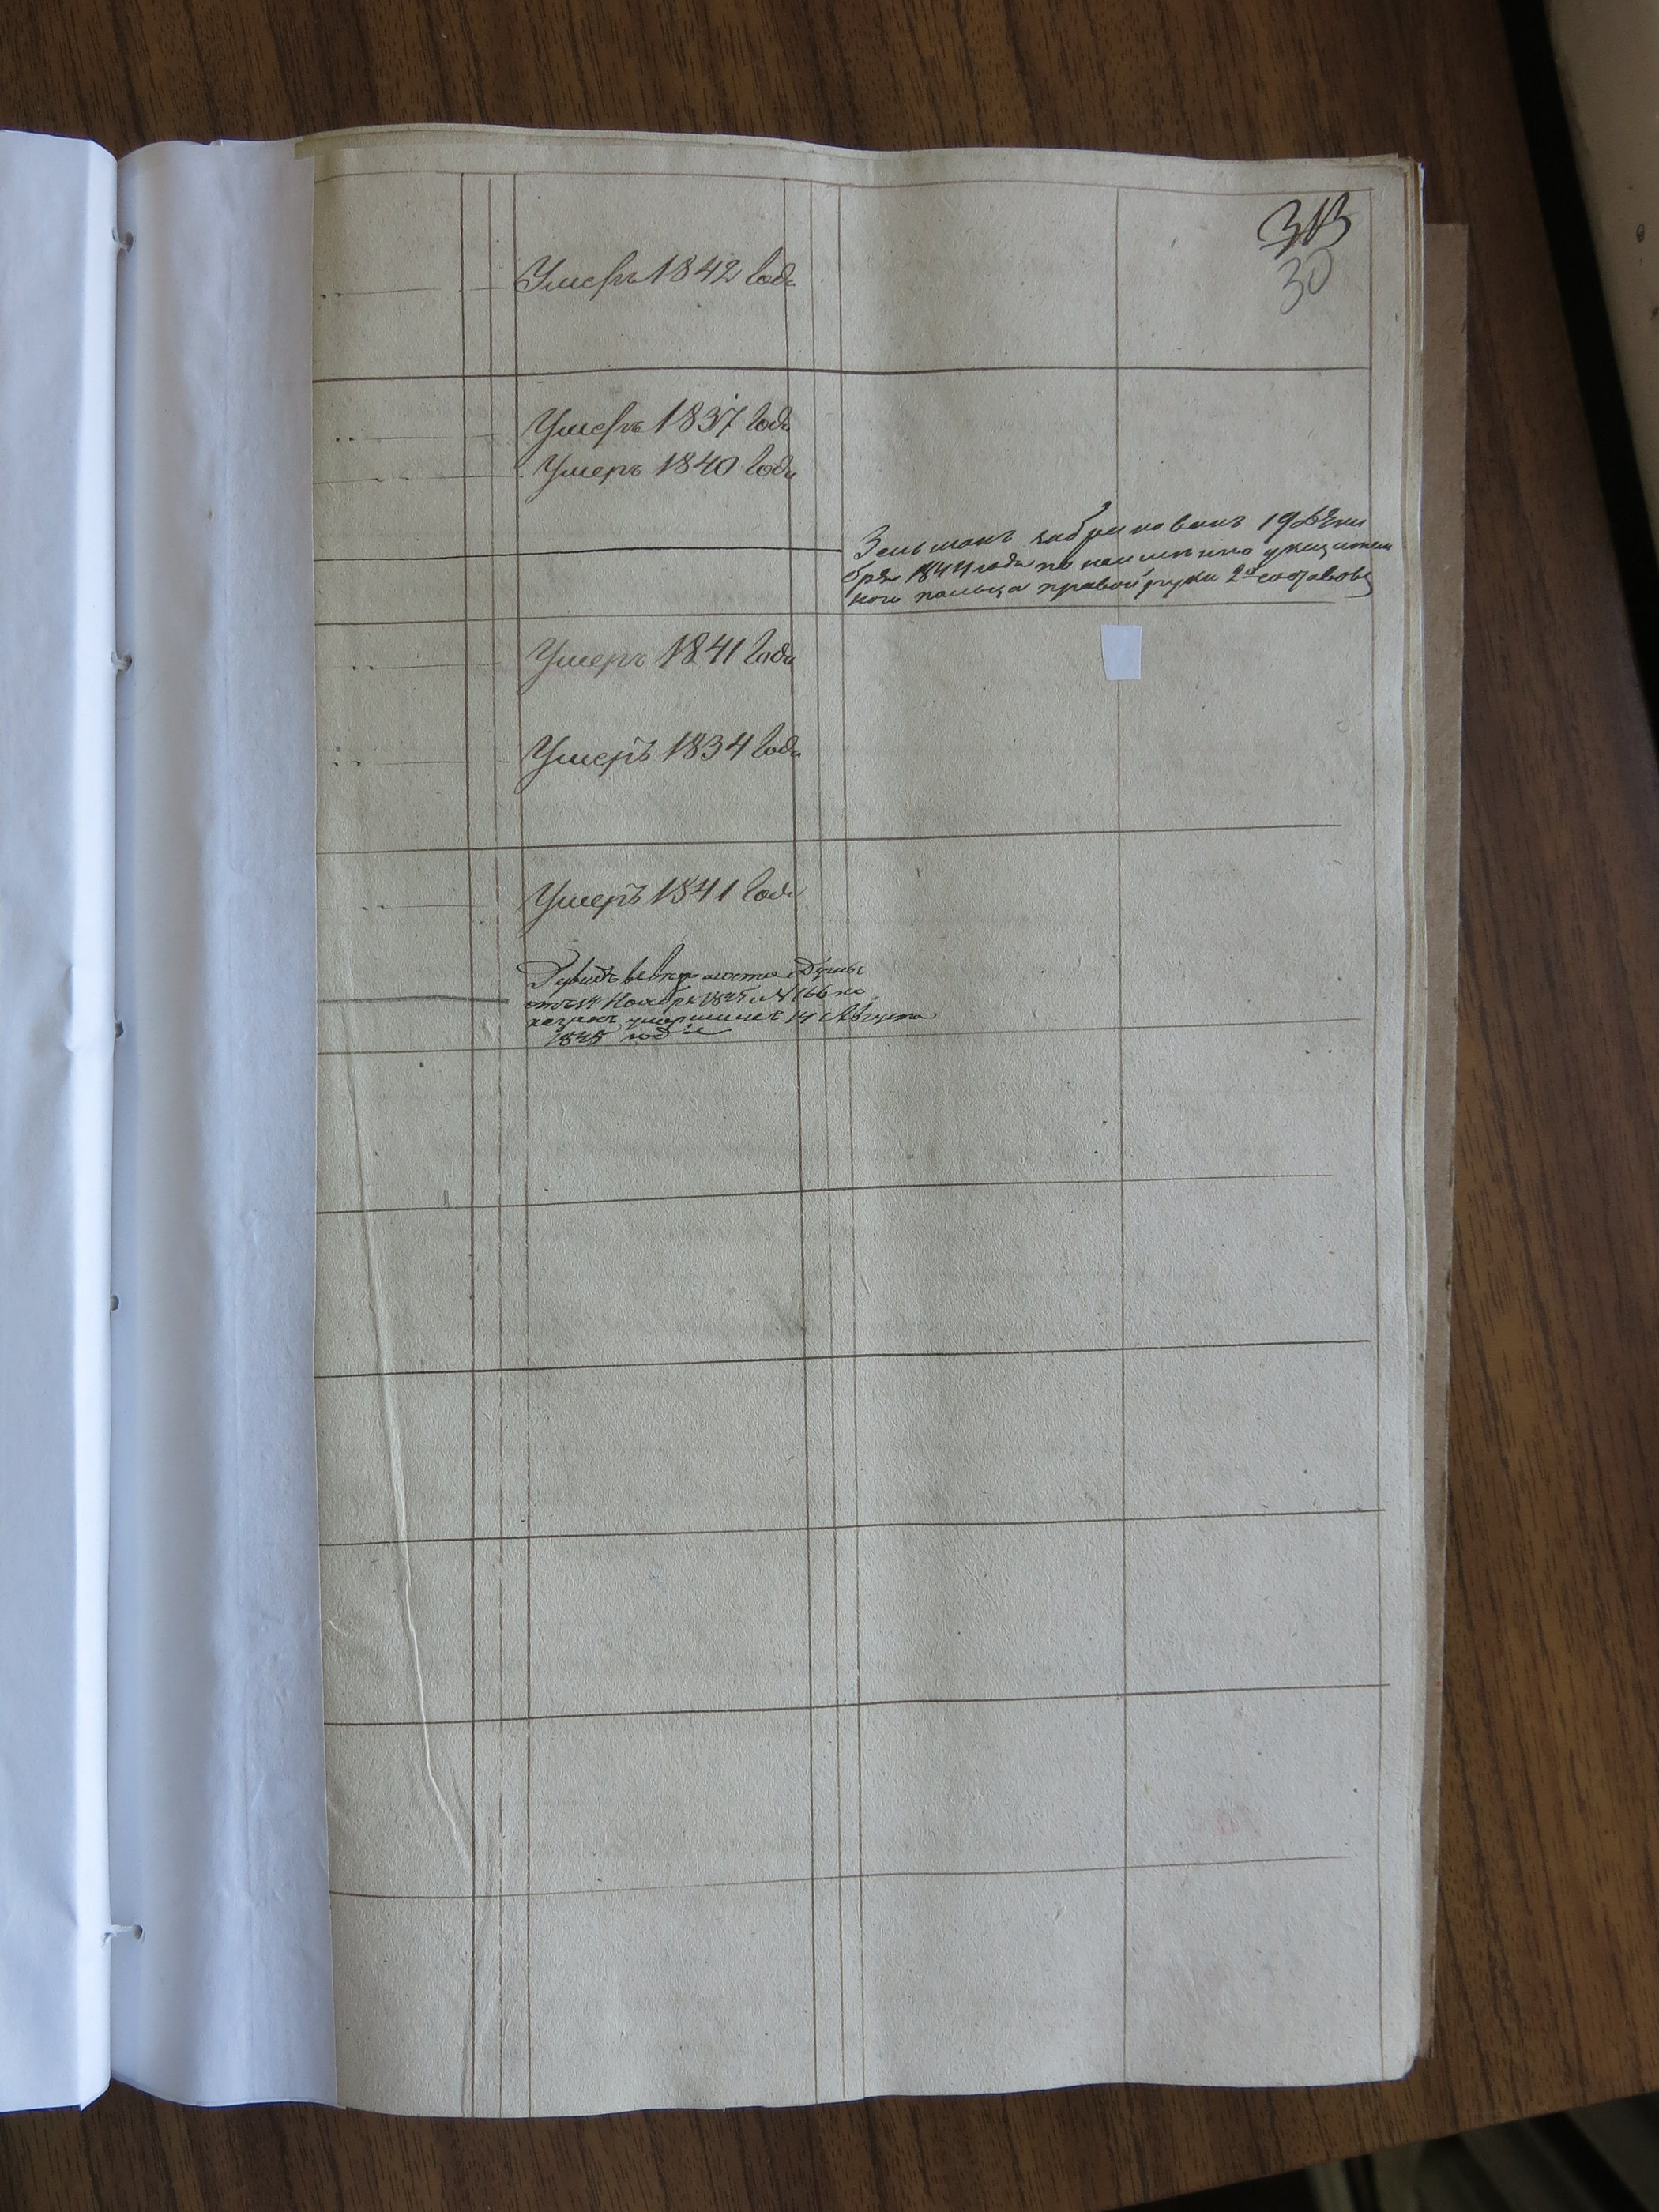 313
30
Умеръ 1842 Года
Умеръ 1837 Года
Умеръ 1840 Года
Зельманъ забракованъ 19 Дека
бря 1844 года по неимѣнію указатель
наго пальца правой руки 2хъ составовъ
Умеръ 1841 Года
Умеръ 1834 Года
Умеръ 1841 Года
Думы
отъ 14 Ноября 1845 № 4166 по
казанъ умершимъ 14 Августа
1845 года